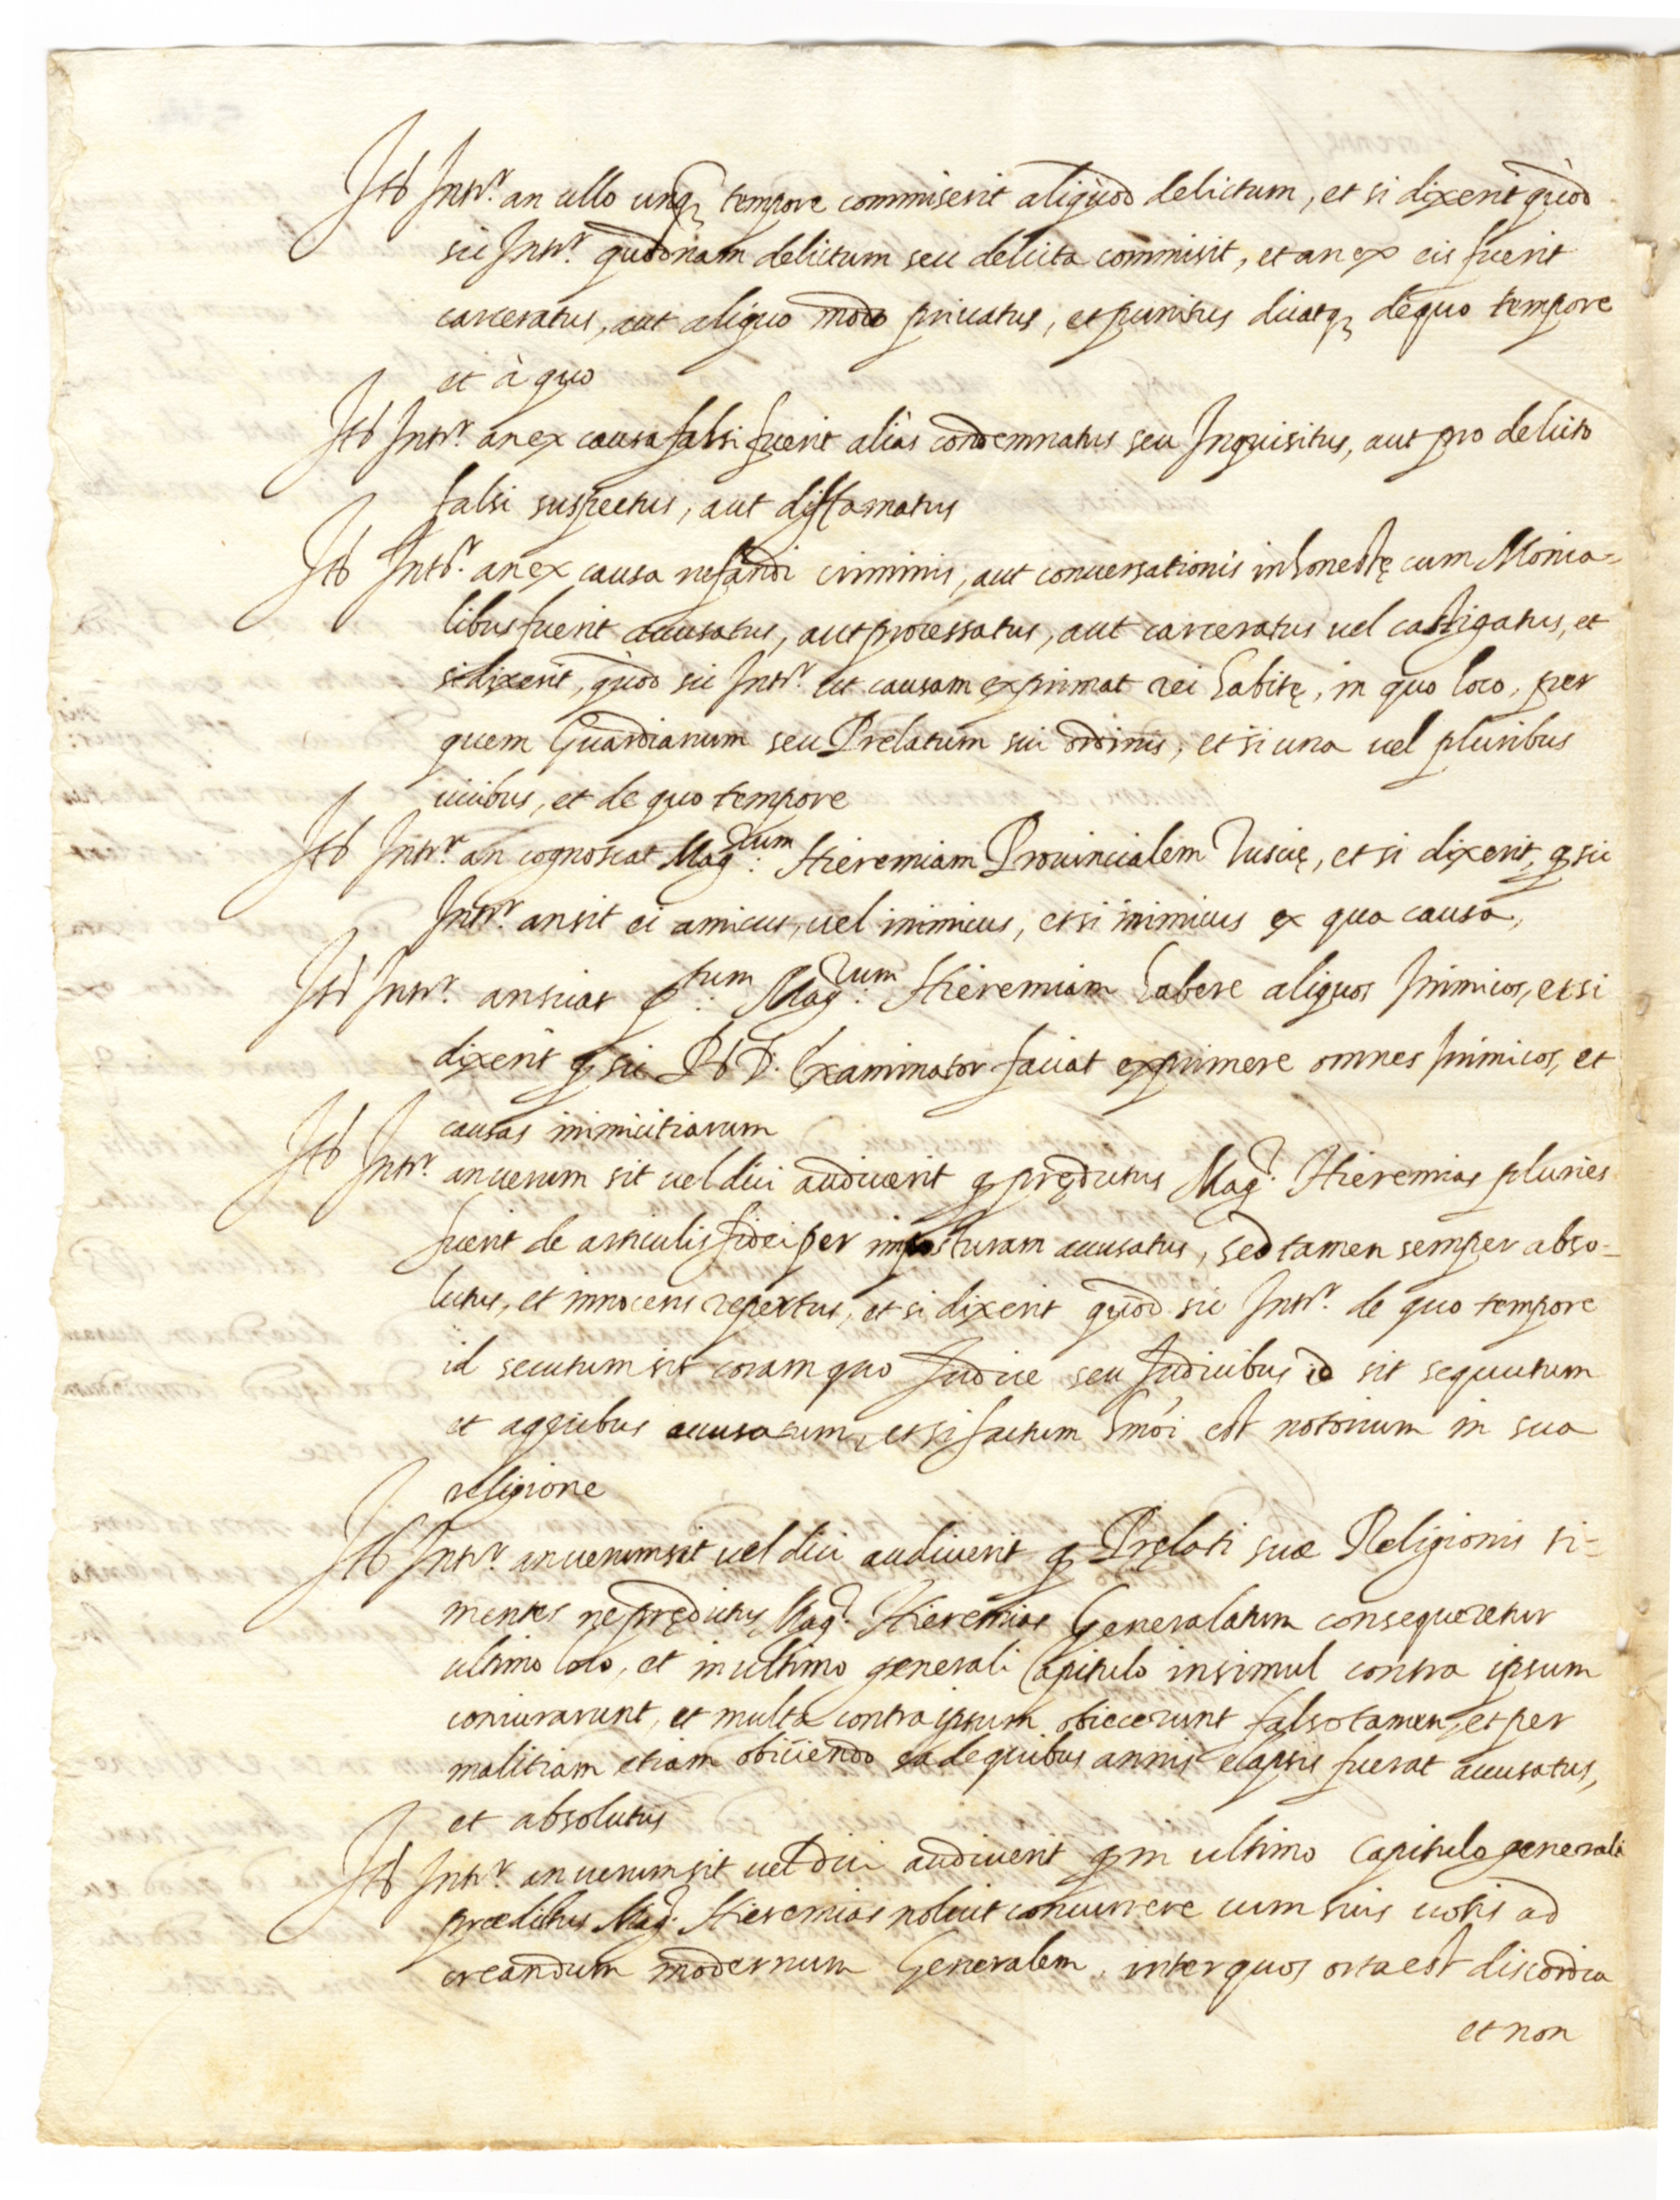 Itẽ Intr.r an ullo unq̃ tempore commiserit aliquod delictum, et si dixerit quòd
sic Intr.r quodnam delictum seu delicta commisit, et an ex eis fuerit
carceratus, aut aliquo modo priuatus, et punitus dicatq̃ de quo tempore
et à quo
Itẽ Intr.r an ex causa falsi fuerit aliàs condemnatus seu Inquisitus, aut pro delicto
falsi suspectus, aut diffamatus
Itẽ Intr.r an ex causa nefandi criminis, aut conuersationis inhonestę cum Monia-
libus fuerit accusatus, aut processatus, aut carceratus uel castigatus, et
si dixerit, quòd sic Intr.r ut causam exprimat rei habitę, in quo loco, per
quem Guardianum seu Prelatum sui ordinis, et si una uel pluribus
uicibus, et de quo tempore
Itẽ Intr.r an cognoscat Mag.rum Hieremiam Prouincialem Tuscię, et si dixerit, q̃ sic
Intr.r an sit ei amicus, uel inimicus, et si inimicus ex qua causa,
Itẽ Intr.r an sciat p.tum Mag.rum Hieremiam habere aliquos Inimicos, et si
dixerit q̃ sic D. Examinator faciat exprimere omnes Inimicos, et
causas inimicitiarum
Itẽ Intr.r an uerum sit uel dici audiuerit q̃ prędictus Mag.r Hieremias pluries
fuerit de articulis fidei per imposturam accusatus, sed tamen semper abso-
lutus, et innocens repertus, et si dixerit quod sic Intr.r de quo tempore
id secutum sit coram quo Iudice seu Iudicibus id sit sequutum
et a quibus accusatum, et si factum hmõi est notorium in sua
religione
Itẽ Intr.r an uerum sit uel dici audiuerit q̃ Pręlati suæ Religionis ti-
mentes ne prędictus Mag.r Hieremias Generalatum consequeretur
ultimo loco, et in ultimo generali Capitulo insimul contra ipsum
coniurarunt, et multa contra ipsum obiecerunt falso tamen, et per
malitiam etiam obiiciendo ea de quibus annis elapsis fuerat accusatus,
et absolutus
Itẽ Intr.r an uerum sit uel dici audiuerit q̃ in ultimo Capitulo generali
prædictus Mag.r Hieremias noluit concurrere cum suis uotis ad
creandum modernum Generalem, inter quos orta est discordia
et non